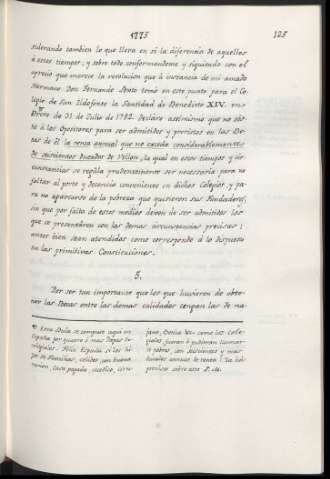 1775
125
siderando tambien lo que lleva en sí la diferencia de aquellos
a estos tiempos, y sobre todo conformandome y siguiendo con el
aprecio que merece la resolucion que á instancia de mi amado
Hermano Don Fernando Sexto tomó en este punto para el Co-
legio de San Ildefonso la Santidad de Benedicto XIV. en
Breve de 31 de Julio de 1752. Declaro asimismo que no obs-
te á los Opositores para ser admitidos y provistos en las Be-
cas de él la renta annual que no exceda considerablemente
de seiscientos Ducados de Vellon, la qual en estos tiempos y cir-
cunstancias se regula prudentemente ser necesaria para no
faltar al porte y decencia conveniente en dichos Colegios, y pa-
ra no apartarse de la pobreza que quisieron sus Fundadores,
sin que por falta de estos medios dexen de ser admitidos los
que se presentaren con las demas circunstancias precisas;
antes bien sean atendidos como corresponde á lo dispuesto
en las primitivas Constituciones.
5.
Por ser tan importante que los que huvieren de obte-
ner las Becas entre las demas calidades tengan las de na-
Esta Bula se compuso aqui en
España por quatro ó mas
si los hi-
jos de Familias, con buena
casa pagada,
como los Cole-
giales, fueran ó pudieran llamar-
se pobres, con seiscientos y mas
ducados annuos de renta!
sobre esto